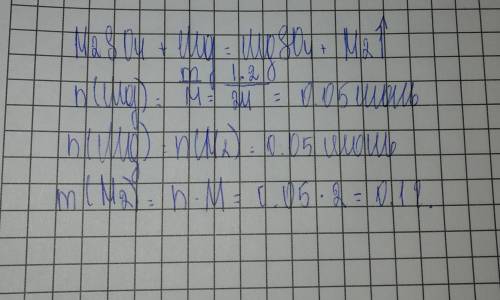 H2SO4 + Mg = MgSO4 + H2↑
n(Mg) = m/M = 1.2/24 = 0.05 моль
n(Mg) = n(H2) = 0.05 моль
m(H2) = n · M = 0.05 · 2 = 0.1 г.